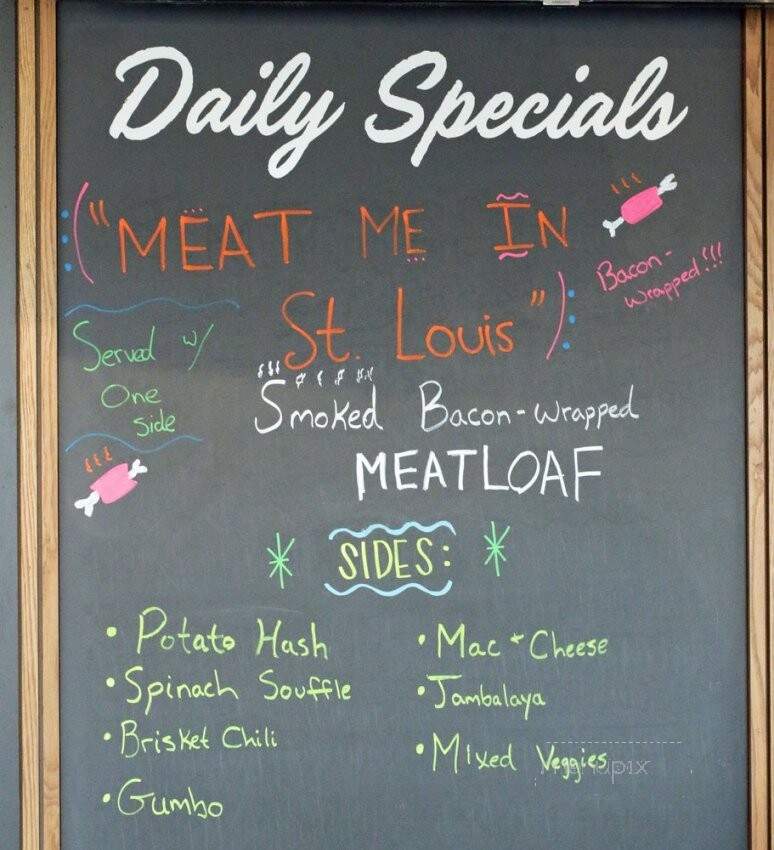 Daily Specials
"MEAT ME IN
St. Louis"
Bacon-
Wrapped!!!
Served w/
One
Side
Smoked Bacon-Wrapped
MEATLOAF
SIDES:
• Potato Hash
• Spinach Souffle
• Brisket Chili
• Gumbo
• Mac + Cheese
• Jambalaya
• Mixed Veggies